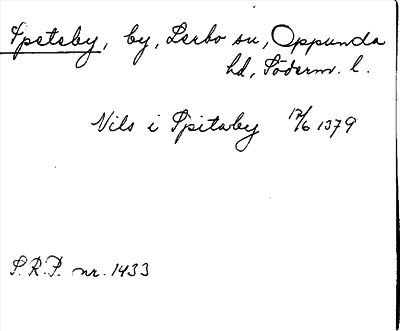 Speteby, by, Lerbo sn, Oppunda
hd, Söderm. l.
Nils i Spitaby 17/6 1379
S.R.P. nr. 1433